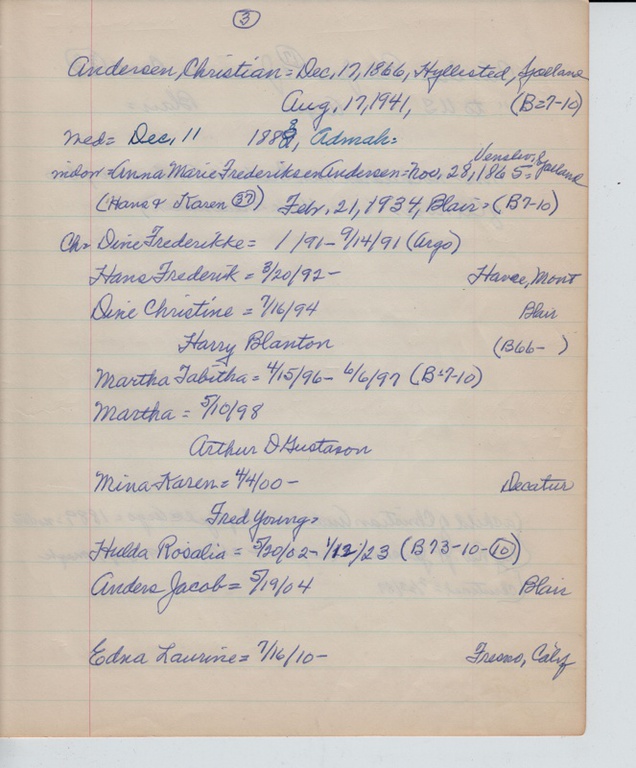 3
Andersen, Christian = Dec, 17, 1866, Hyllested, Sjaelland
Aug, 17, 1941, (B=7-10)
Med= Dec, 11 188, Admah=
Anna Marie Frederiksen Andersen = Nov, 28, 1865= Venslev, Sjaelland
(Hans & Karen 37) Febr, 21, 1934, Blair= (B7-10)
Ch= Dine Frederikke = 1/91-9/14/91 (Argo)
Hans Frederik = 3/20/92- Havre, Mont
Dine Christine = 7/16/94 Blair
Harry Blanton (B66- )
Martha Tabitha = 4/15/96- 6/6/97 (B=7-10)
Martha = 5/10/98
Arthur D Gustason
Mina Karen = 4/4/00- Decatur
Fred Young=
Hulda Rosalia = 5/30/02- 1/12/23 (B73-10-10)
Anders Jacob = 5/19/04 Blair
Edna Laurine = 7/16/10- Fresno, Calif